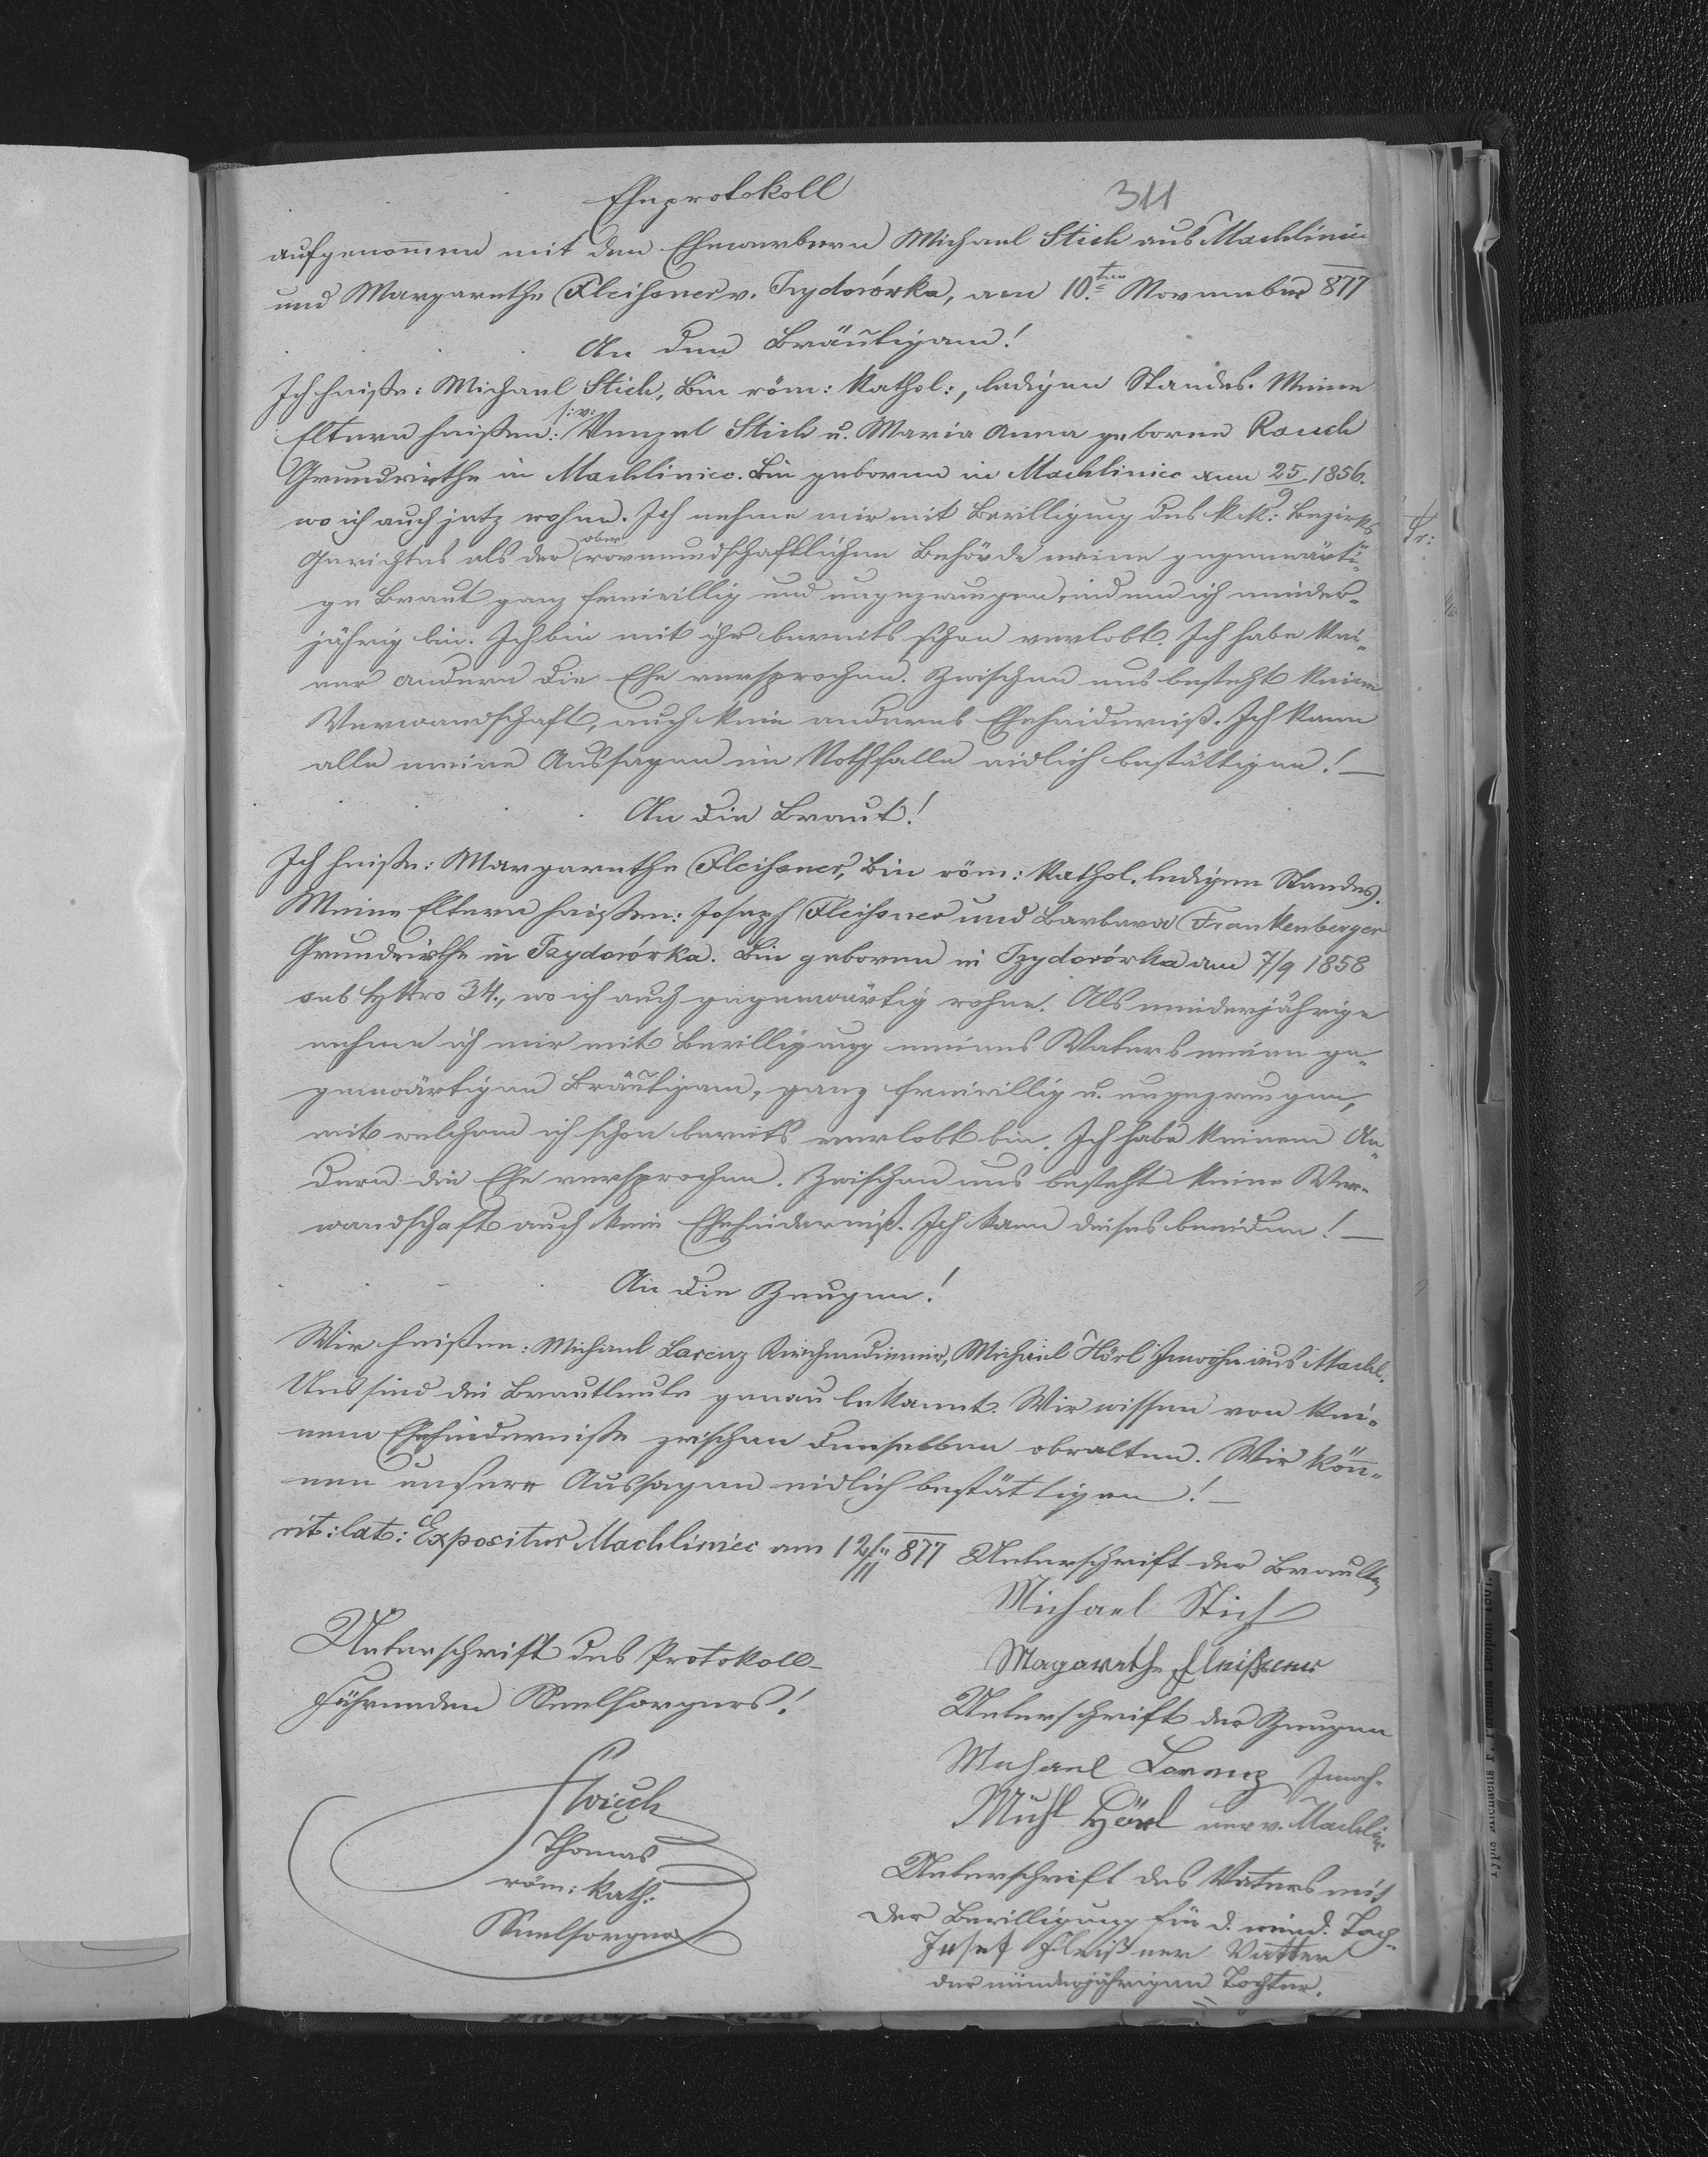 Eheprotokoll
311
aufgenom̅en mit den Ehewerbern Michael Stich aus Machliniec
und Margarethe Fleißner v. Izydorówka, am 10.ten November 877
An den Bräutigam!
Ich heiße: Michael Stich, bin röm: kathol:, ledigen Standes. Meine
Eltern heißen: /:v:/ Wenzel Stich u. Maria Anna geborne Rauch
Grundwirthe in Machliniec. Bin geboren in Machliniec am 25/9 1856.
wo ich auch jetz wohne. Ich nehme mir mit Bewilligung des k.k: Bezirks
Gerichtes als der obervormundschaftlichen Behörde meine gegenwärti-
ge Braut ganz freiwillig und ungezwungen, indem ich minder-
jährig bin. Ich bin mit ihr bereits schon verlobt. Ich habe kei-
ner andern die Ehe versprochen. Zwischen uns besteht keine
Verwandschaft, auch kein anderes Ehehinderniß. Ich kann
alle meine Aussagen im Nothfalle eidlich bestättigen! —
An die Braut!
Ich heiße: Margarethe Fleißner, bin röm: kathol. ledigen Standes.
Meine Eltern heißen: Joseph Fleißner und Barbara Frankenberger
Grundwirthe in Izydorówka. Bin geboren in Izydorówka am 7/9 1858
sub HNro 34., wo ich auch gegenwärtig wohne. Als minderjährige
nehme ich mir mit Bewilligung meines Vaters meinen ge-
genwärtigen Bräutigam, ganz freiwillig u. ungezwungen,
mit welchem ich schon bereits verlobt bin. Ich habe keinem An-
dern die Ehe versprochen. Zwischen uns besteht keine Ver-
wandschaft auch kein Ehehinderniß. Ich kann dieses beeiden! —
An die Zeugen!
Wir heißen: Michael Lorenz Kirchendiener, Michael Hörl Inwohn aus Machl.
Uns sind die Brautleute genau bekannt. Wir wissen von kei-
nem Ehehinderniße zwischen denselben obwalten. Wir kön̅-
nen unsere Aussagen eidlich bestättigen! —
rit: lat: Expositur Machliniec am 12/11 877
Unterschrift der Brautl.
Michael Stich
Magarethe Fleißner
Unterschrift des Protokoll-
führenden Seelsorgers!
Unterschrift der Zeugen
Michael Lorenz Inwoh-
Michl Hörl ner v. Machlin
Thomas
röm: kath:
Seelsorger
Unterschrift des Vaters mit
der Bewilligung für d. mind. Toch-
Josef Fleißner Vatter
der minderjährigen Tochter.